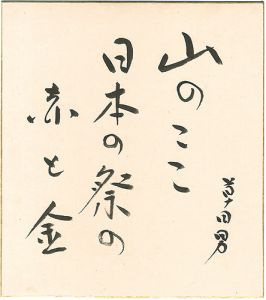 山のここ
日本の祭の
赤と金
草田男